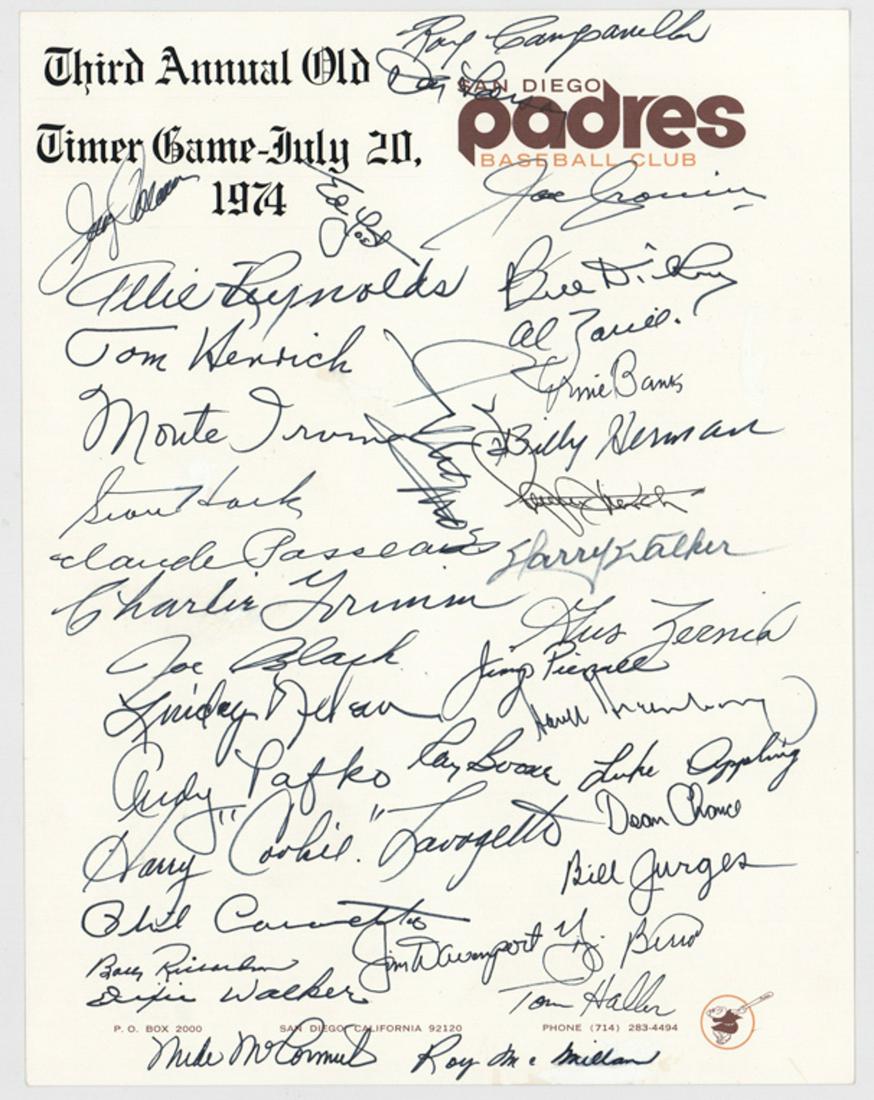 Third Annual Old
Timer Game-July 20,
1974
Roy Campanella
SAN DIEGO
padres
BASEBALL CLUB
Joe Cronin
Ed Lopat
Allie Reynolds
Bill Dickey
Tom Henrich
Al Zarilla
Ernie Banks
Monte Irvin
Billy Herman
Stan Hack
Claude Passeau
Harry Walker
Charlie Grimm
Gus Zernial
Joe Black
Jim Piersall
Lindsey Nelson
Andy Pafko
Ray Boone
Luke Appling
Dean Chance
Harry "Cookie" Lavagetto
Bill Jurges
Phil Cavarretta
Jim Davenport
Bobby Richardson
Dixie Walker
Tom Haller
P. O. BOX 2000
SAN DIEGO CALIFORNIA 92120
PHONE (714) 283-4494
Mike McCormick
Roy McMillan